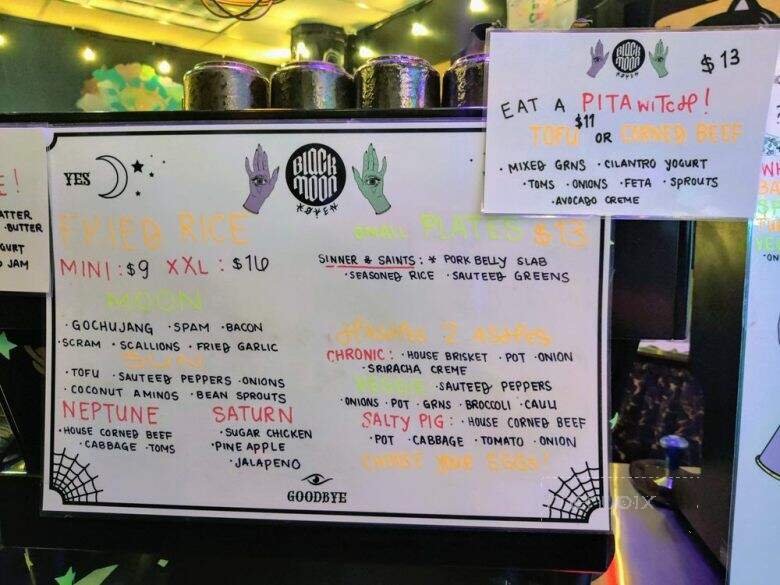 BLACK
MOON
$13
EAT A PITA WiTCH!
$11
TOFU OR CORNED BEEF
· MIXED GRNS · CILANTRO YOGURT
· TOMS · ONIONS · FETA · SPROUTS
· AVOCADO CREME
E!
ATTER
· BUTTER
GURT
JAM
YES
BLACK
MOON
FRIED RICE
MINI: $9 XXL: $16
MOON
· GOCHUJANG · SPAM · BACON
· SCRAM · SCALLIONS · FRIED GARLIC
SUN
· TOFU · SAUTEED PEPPERS · ONIONS
· COCONUT AMINOS · BEAN SPROUTS
NEPTUNE
· HOUSE CORNED BEEF
· CABBAGE · TOMS
SATURN
· SUGAR CHICKEN
· PINEAPPLE
· JALAPENO
SMALL PLATES $13
SINNER & SAINTS: * PORK BELLY SLAB
· SEASONED RICE · SAUTEED GREENS
HASHES 2 ASHES
CHRONIC: · HOUSE BRISKET · POT · ONION
· SRIRACHA CREME
VEGGIE · SAUTEED PEPPERS
· ONIONS · POT · GRNS · BROCCOLI · CAULI
SALTY PIG: · HOUSE CORNED BEEF
· POT · CABBAGE · TOMATO · ONION
CHOOSE YOUR EGGS!
GOODBYE